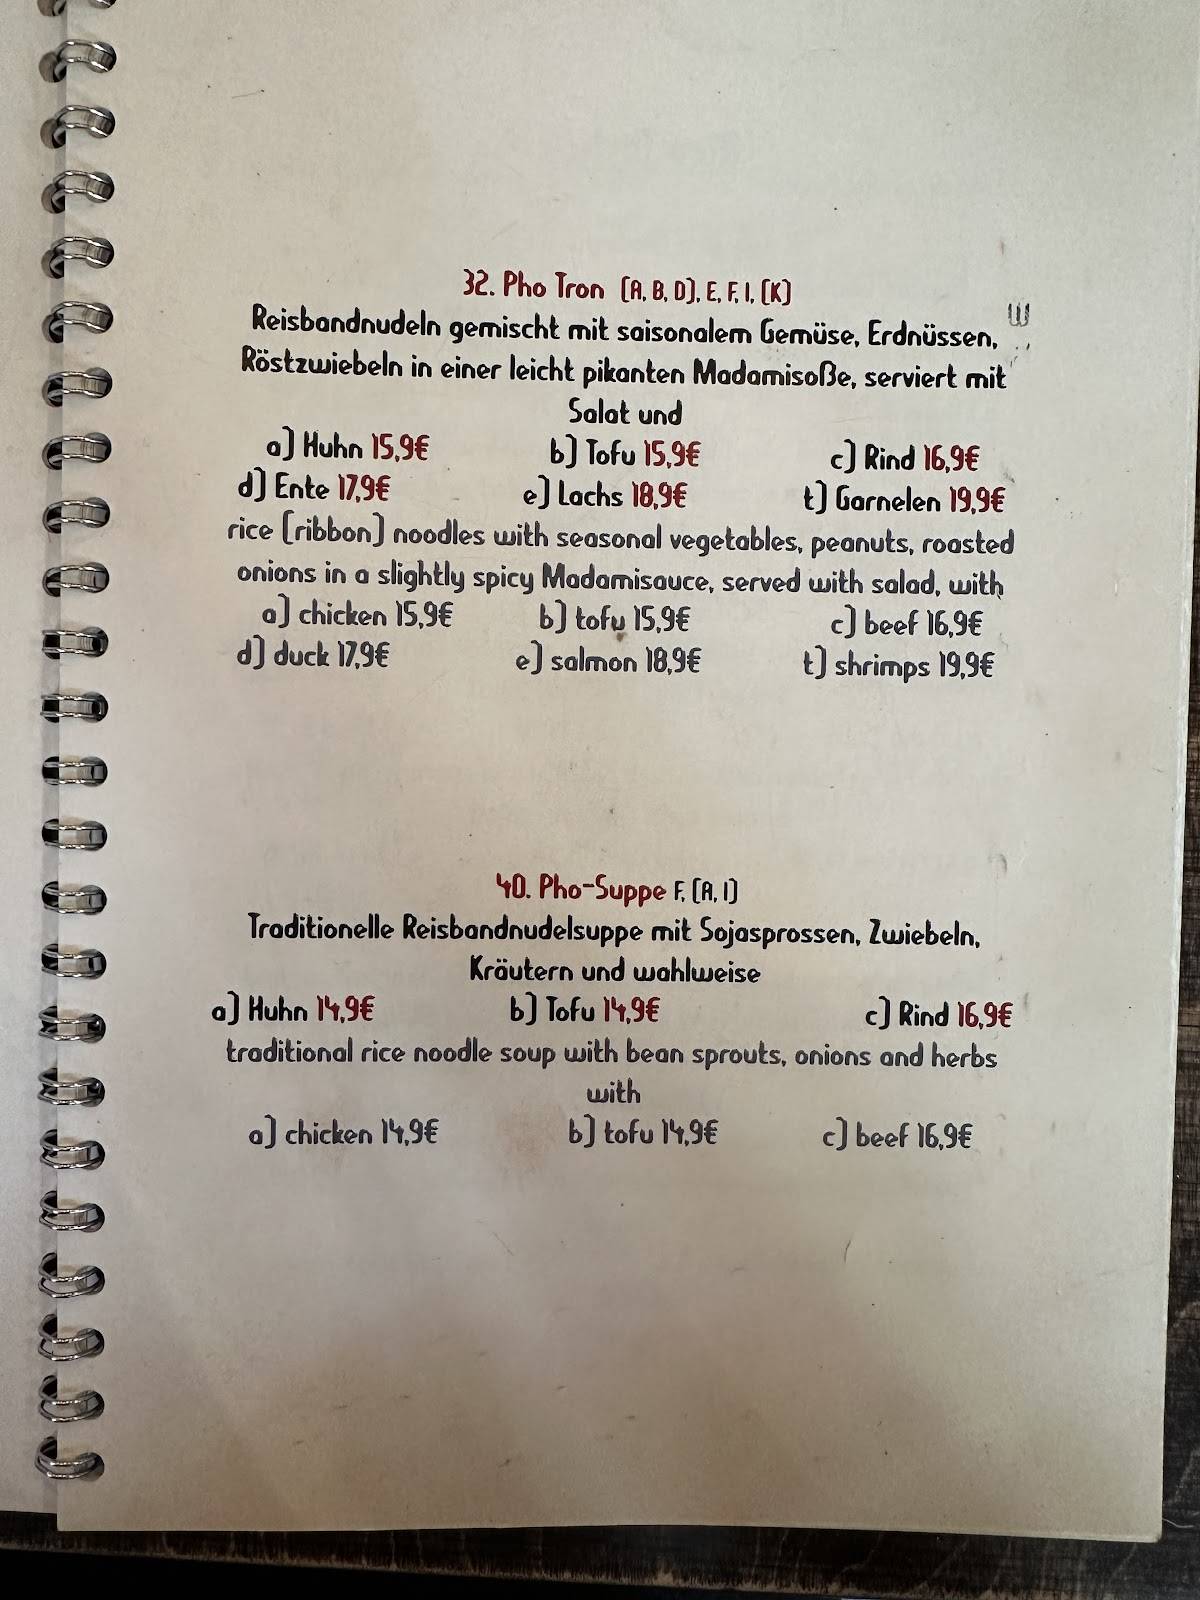 32. Pho Tron (A, B, D), E, F, I, (K)
Reisbandnudeln gemischt mit saisonalem Gemüse, Erdnüssen,
Röstzwiebeln in einer leicht pikanten Madamisoße, serviert mit
Salat und
a) Huhn 15,9€ b) Tofu 15,9€ c) Rind 16,9€
d) Ente 17,9€ e) Lachs 18,9€ t) Garnelen 19,9€
rice (ribbon) noodles with seasonal vegetables, peanuts, roasted
onions in a slightly spicy Madamisauce, served with salad, with
a) chicken 15,9€ b) tofu 15,9€ c) beef 16,9€
d) duck 17,9€ e) salmon 18,9€ t) shrimps 19,9€
40. Pho-Suppe F, (A, I)
Traditionelle Reisbandnudelsuppe mit Sojasprossen, Zwiebeln,
Kräutern und wahlweise
a) Huhn 14,9€ b) Tofu 14,9€ c) Rind 16,9€
traditional rice noodle soup with bean sprouts, onions and herbs
with
a) chicken 14,9€ b) tofu 14,9€ c) beef 16,9€